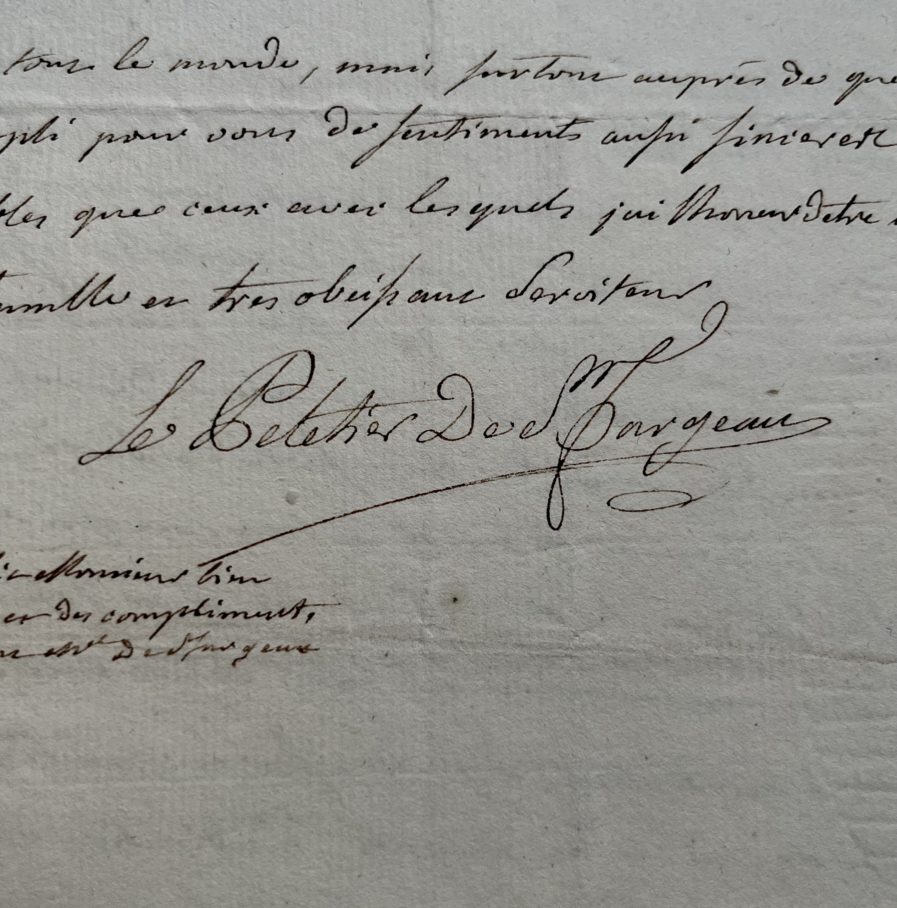 tout le monde, mais surtout auprès de que
pli pour vous de sentiments aussi sinceres et
bles que ceux avec lesquels jai lhonneur detre
humble et tres obeissant Serviteur
Le Peletier De St Fargeau
Monsieur bien
et des compliments
De St fargeau